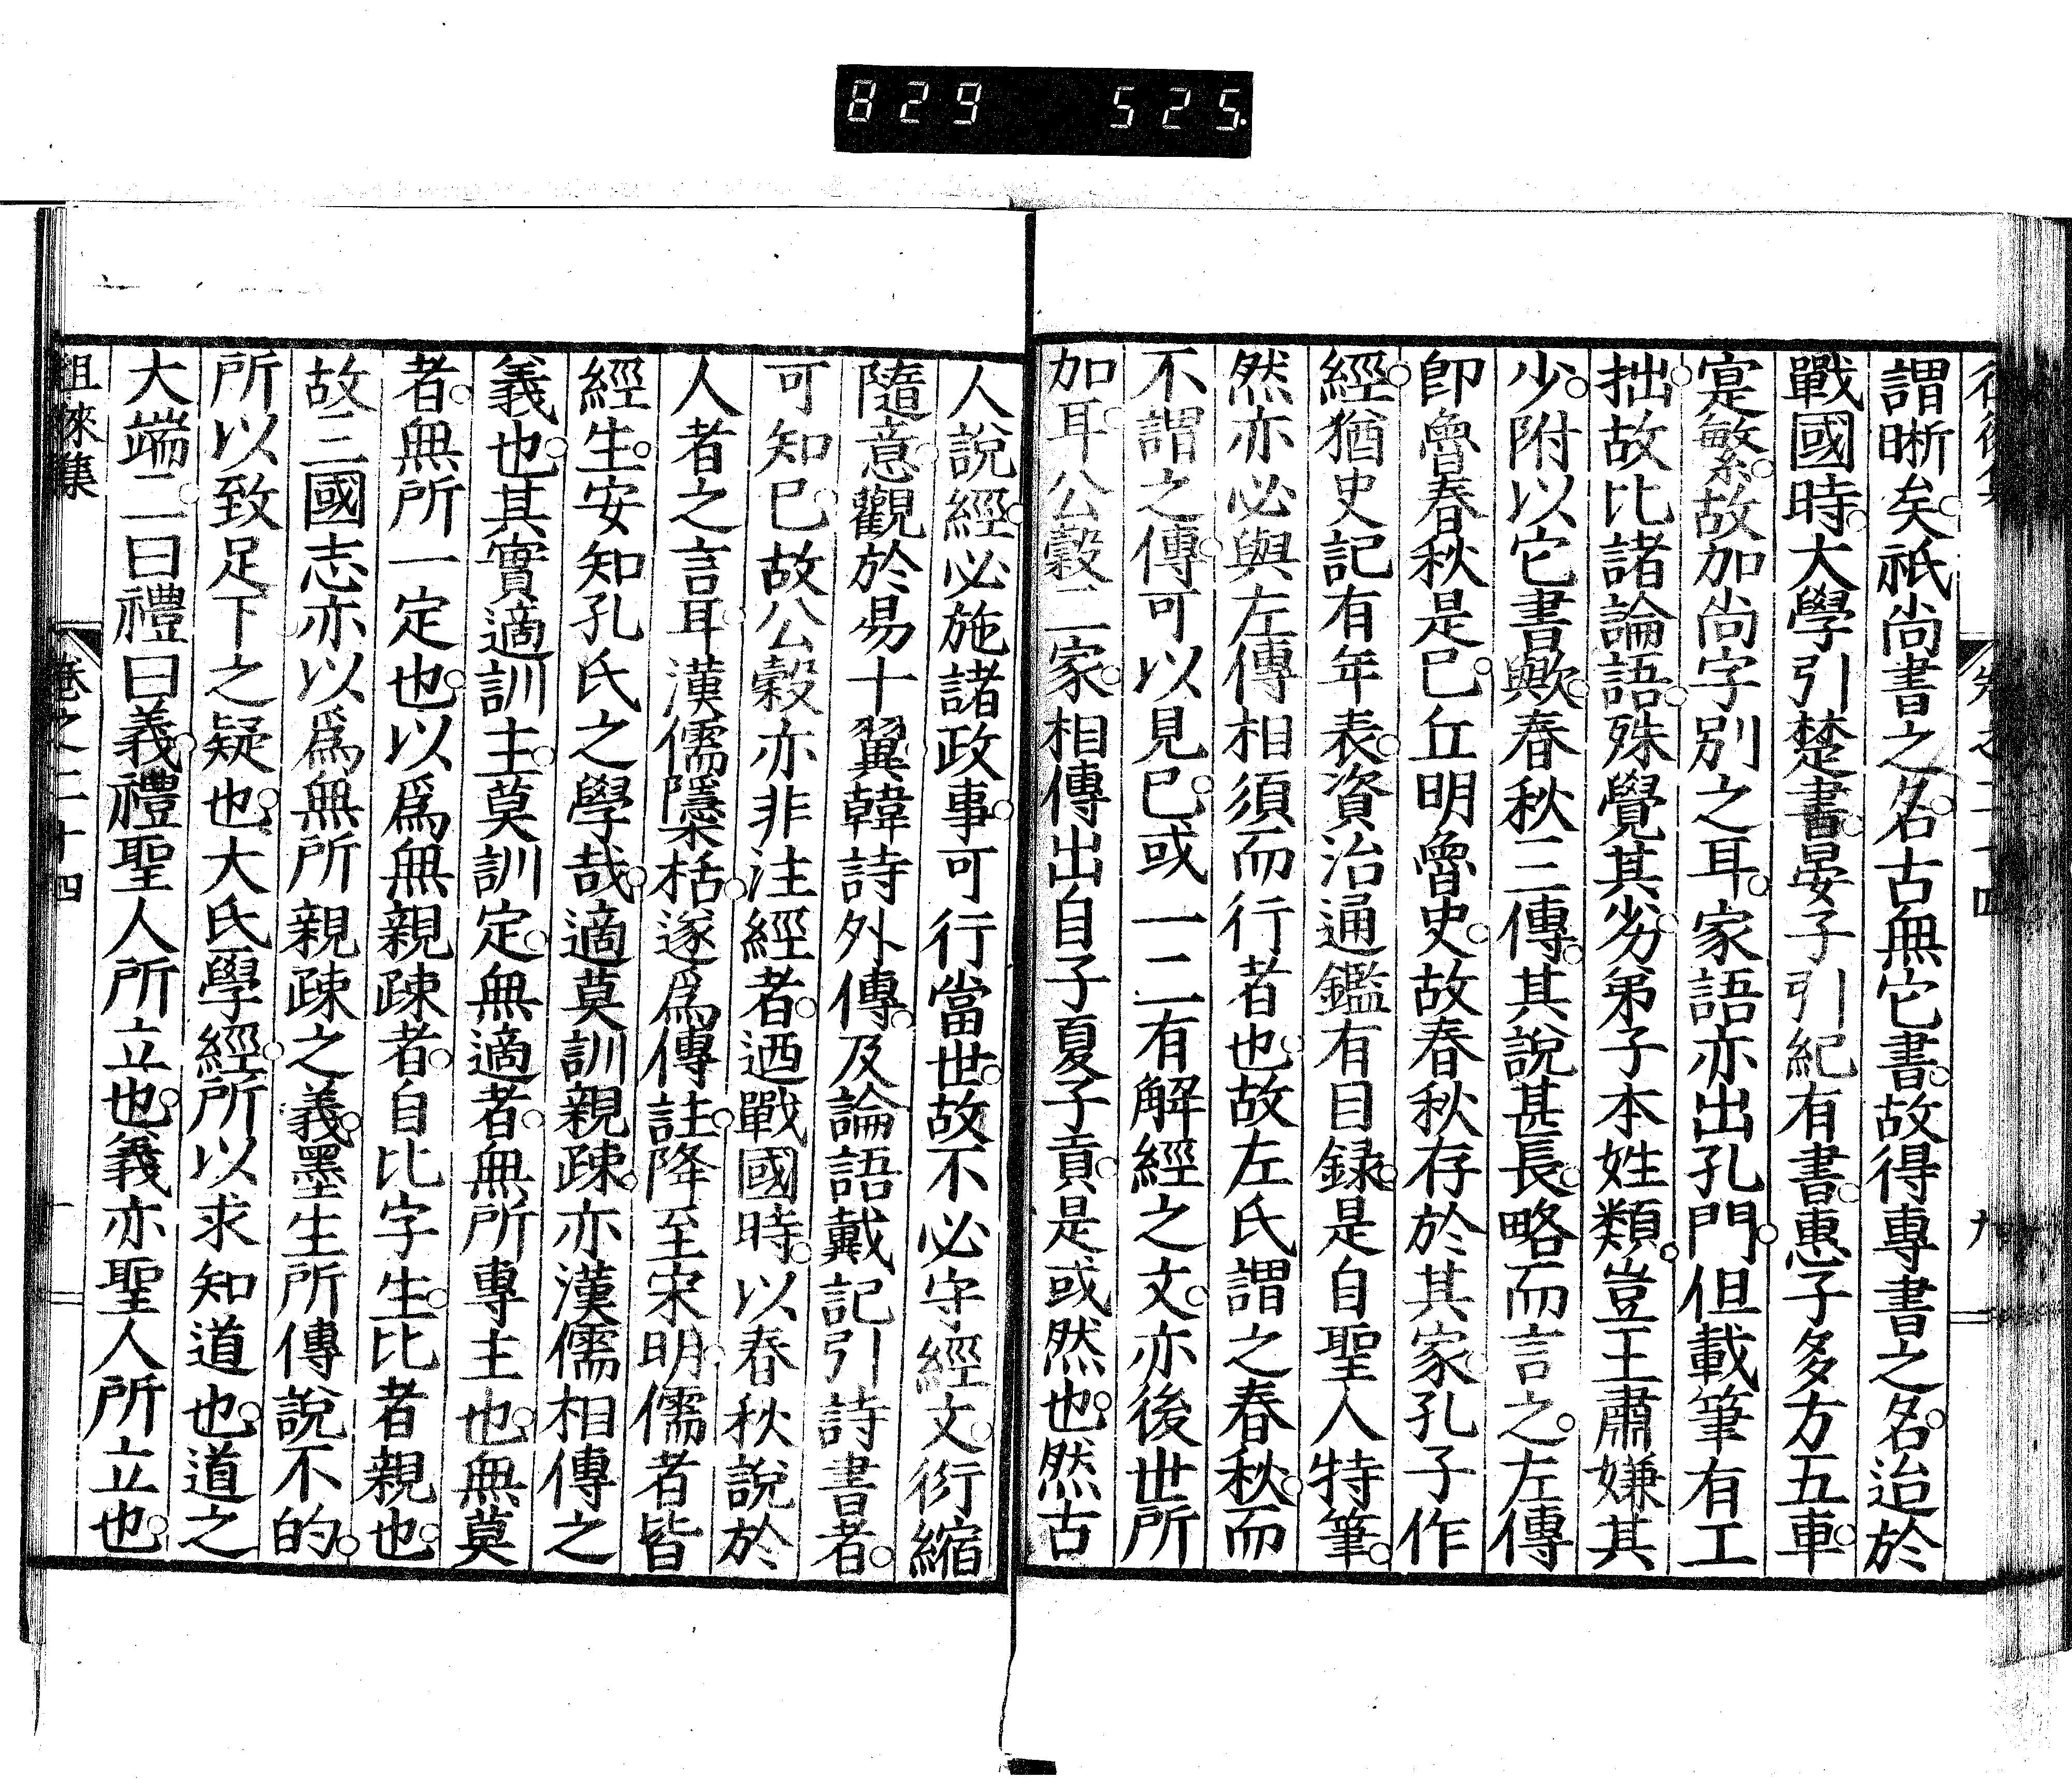 829 525
謂晰矣。祇尚書之名。古無它書。故得專書之名。迨於
戰國時。大學引楚書。晏子引紀有書。惠子多方五車。
寔繁。故加尚字別之耳。家語亦出孔門。但載筆有工
拙。故比諸論語。殊覺其劣。弟子本姓類。豈王肅嫌其
少。附以它書歟。春秋三傳。其說甚長。略而言之。左傳
卽魯春秋是已。丘明魯史。故春秋存於其家。孔子作
經。猶史記有年表。資治通鑑有目録。是自聖人特筆。
然亦必與左傳相須而行者也。故左氏謂之春秋。而
不謂之傳。可以見已。或一二有解經之文。亦後世所
加耳。公穀二家。相傳出自子夏子貢。是或然也。然古
人說經。必施諸政事。可行當世。故不必守經文。衍縮
隨意。觀於易十翼韓詩外傳。及論語戴記引詩書者。
可知已。故公穀亦非注經者。迺戰國時。以春秋說於
人者之言耳。漢儒隱栝。遂爲傳註。降至宋明。儒者皆
經生。安知孔氏之學哉。適莫訓親疎。亦漢儒相傳之
義也。其實適訓主。莫訓定。無適者。無所專主也。無莫
者。無所一定也。以爲無親疎者。自比字生。比者親也。
故三國志亦以爲無所親疎之義。墨生所傳說不的。
所以致足下之疑也。大氏學經。所以求知道也。道之
大端二。曰禮曰義。禮聖人所立也。義亦聖人所立也。
徂徠集 卷之二十四